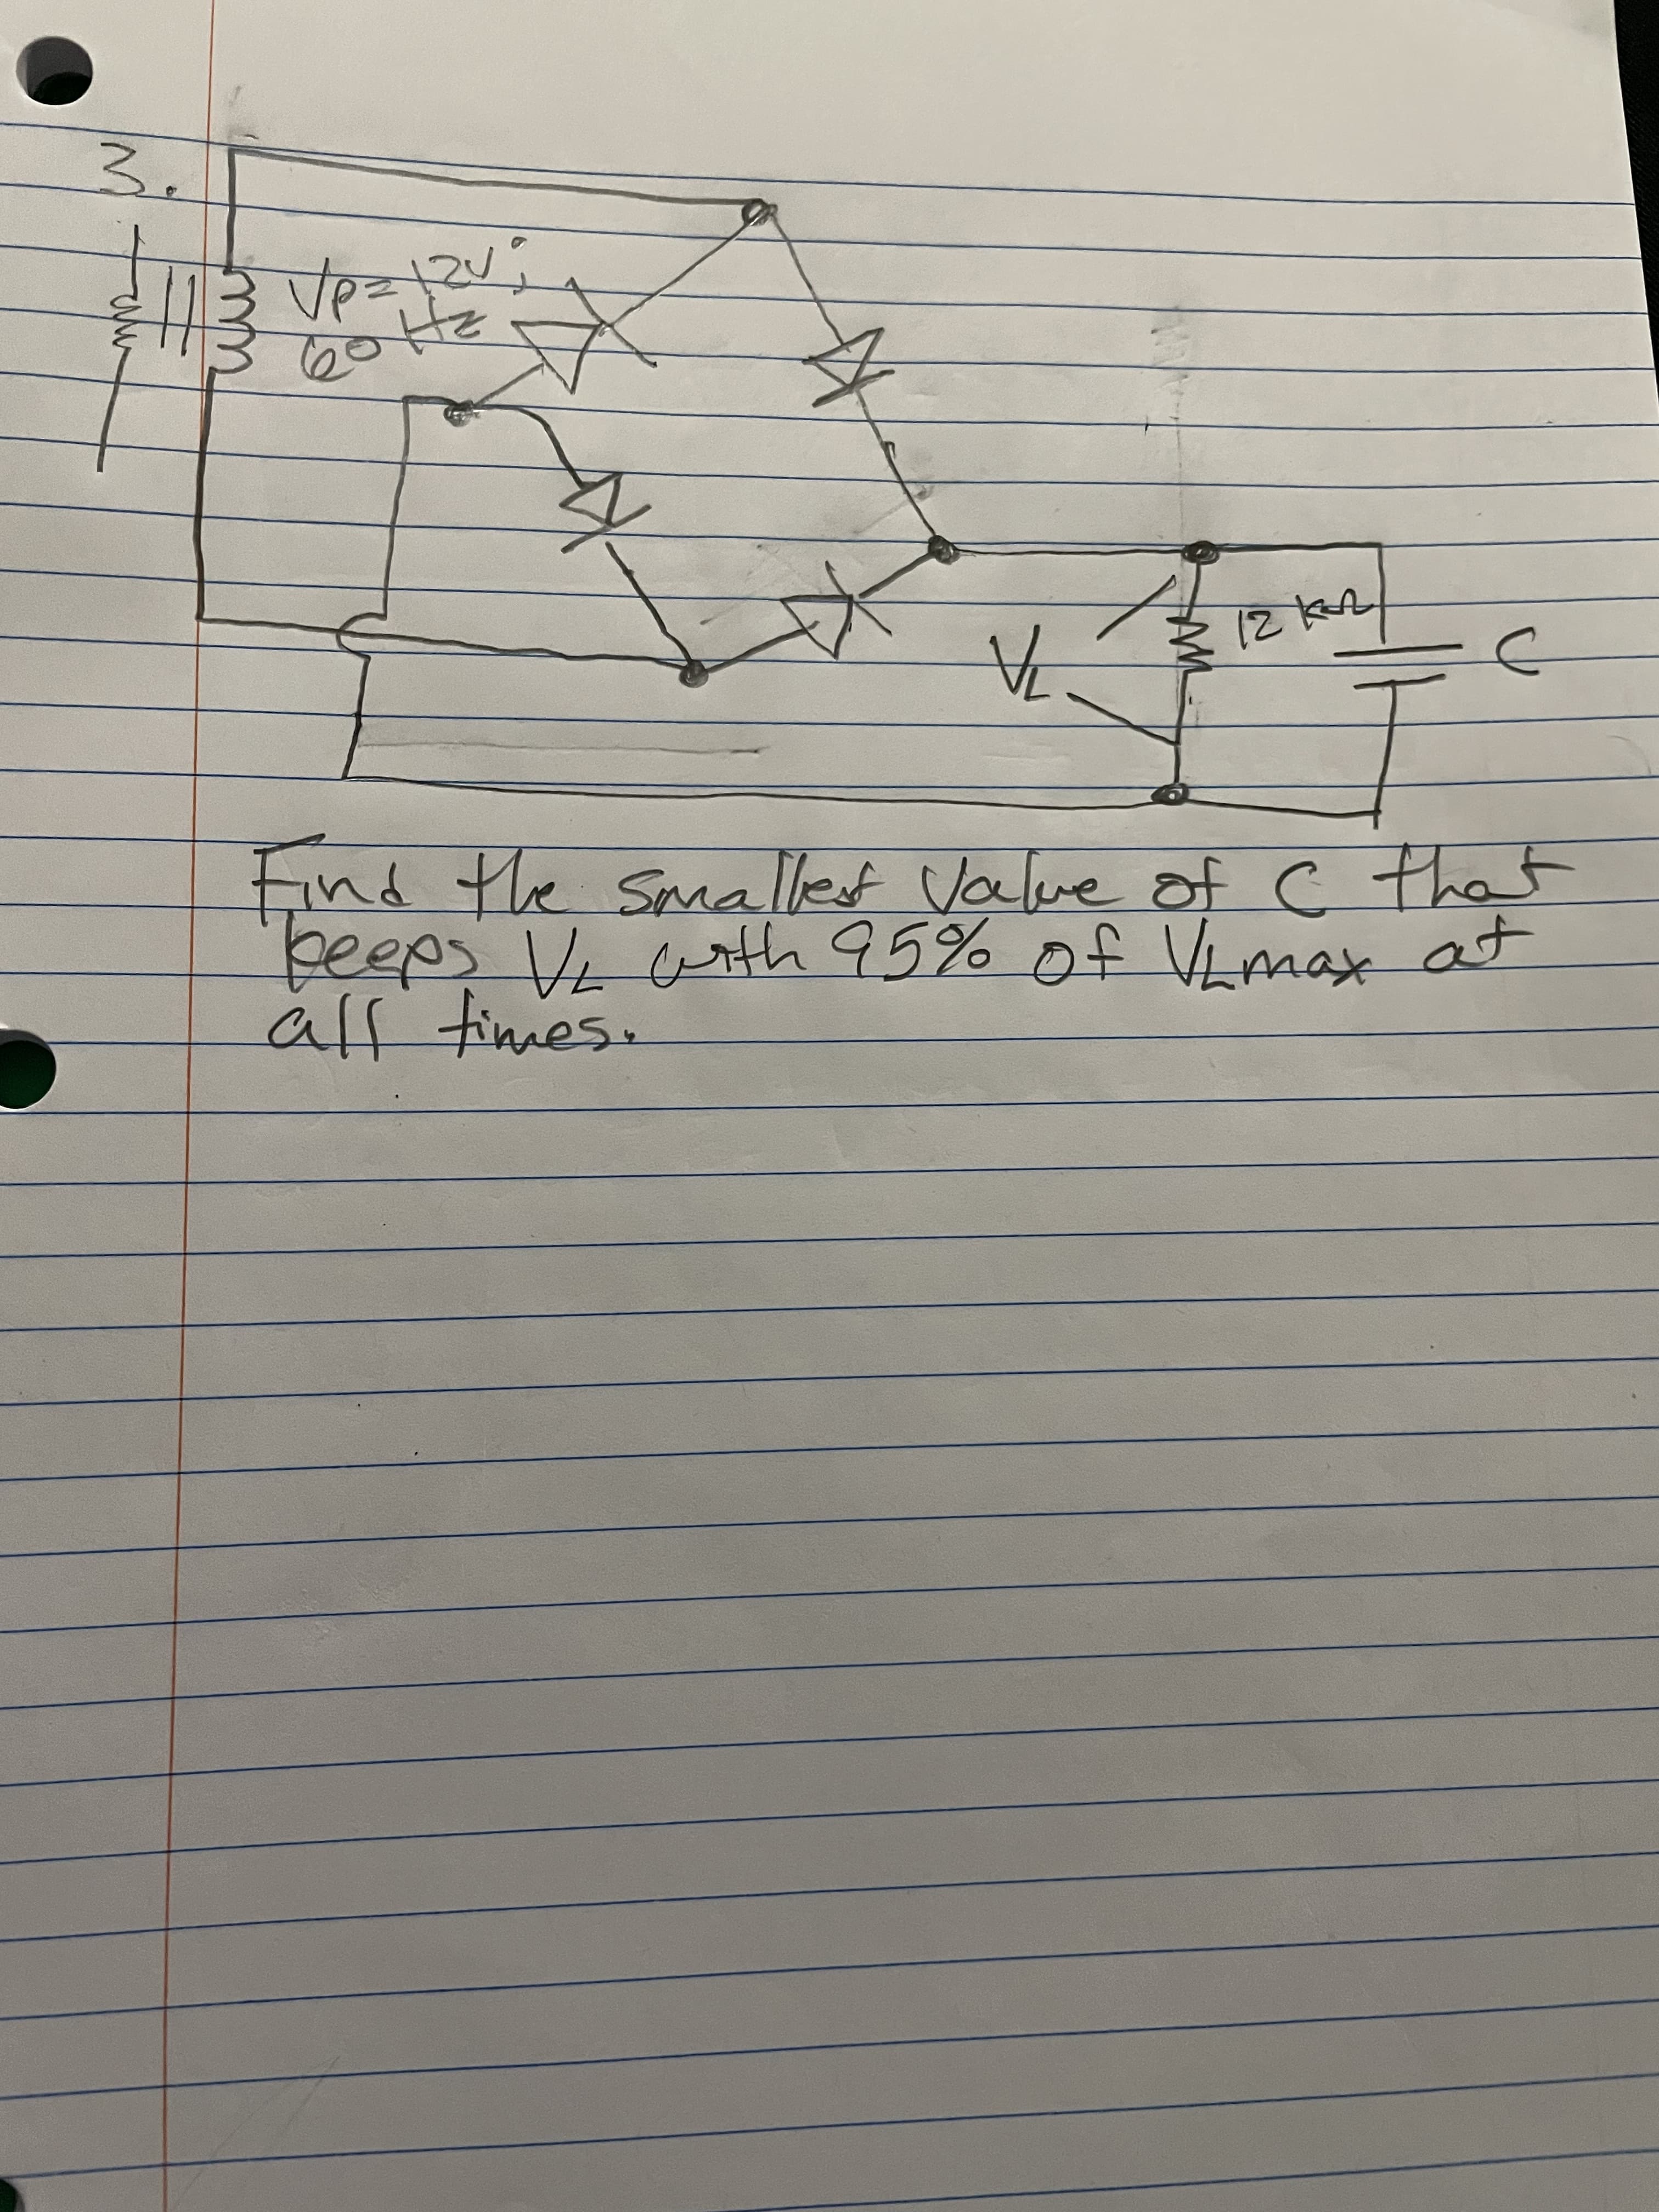 3.
Vp = 12V;
60 Hz
12 kΩ
C
VL
Find the smallest value of C that
keeps VL with 95% of VLmax at
all times.